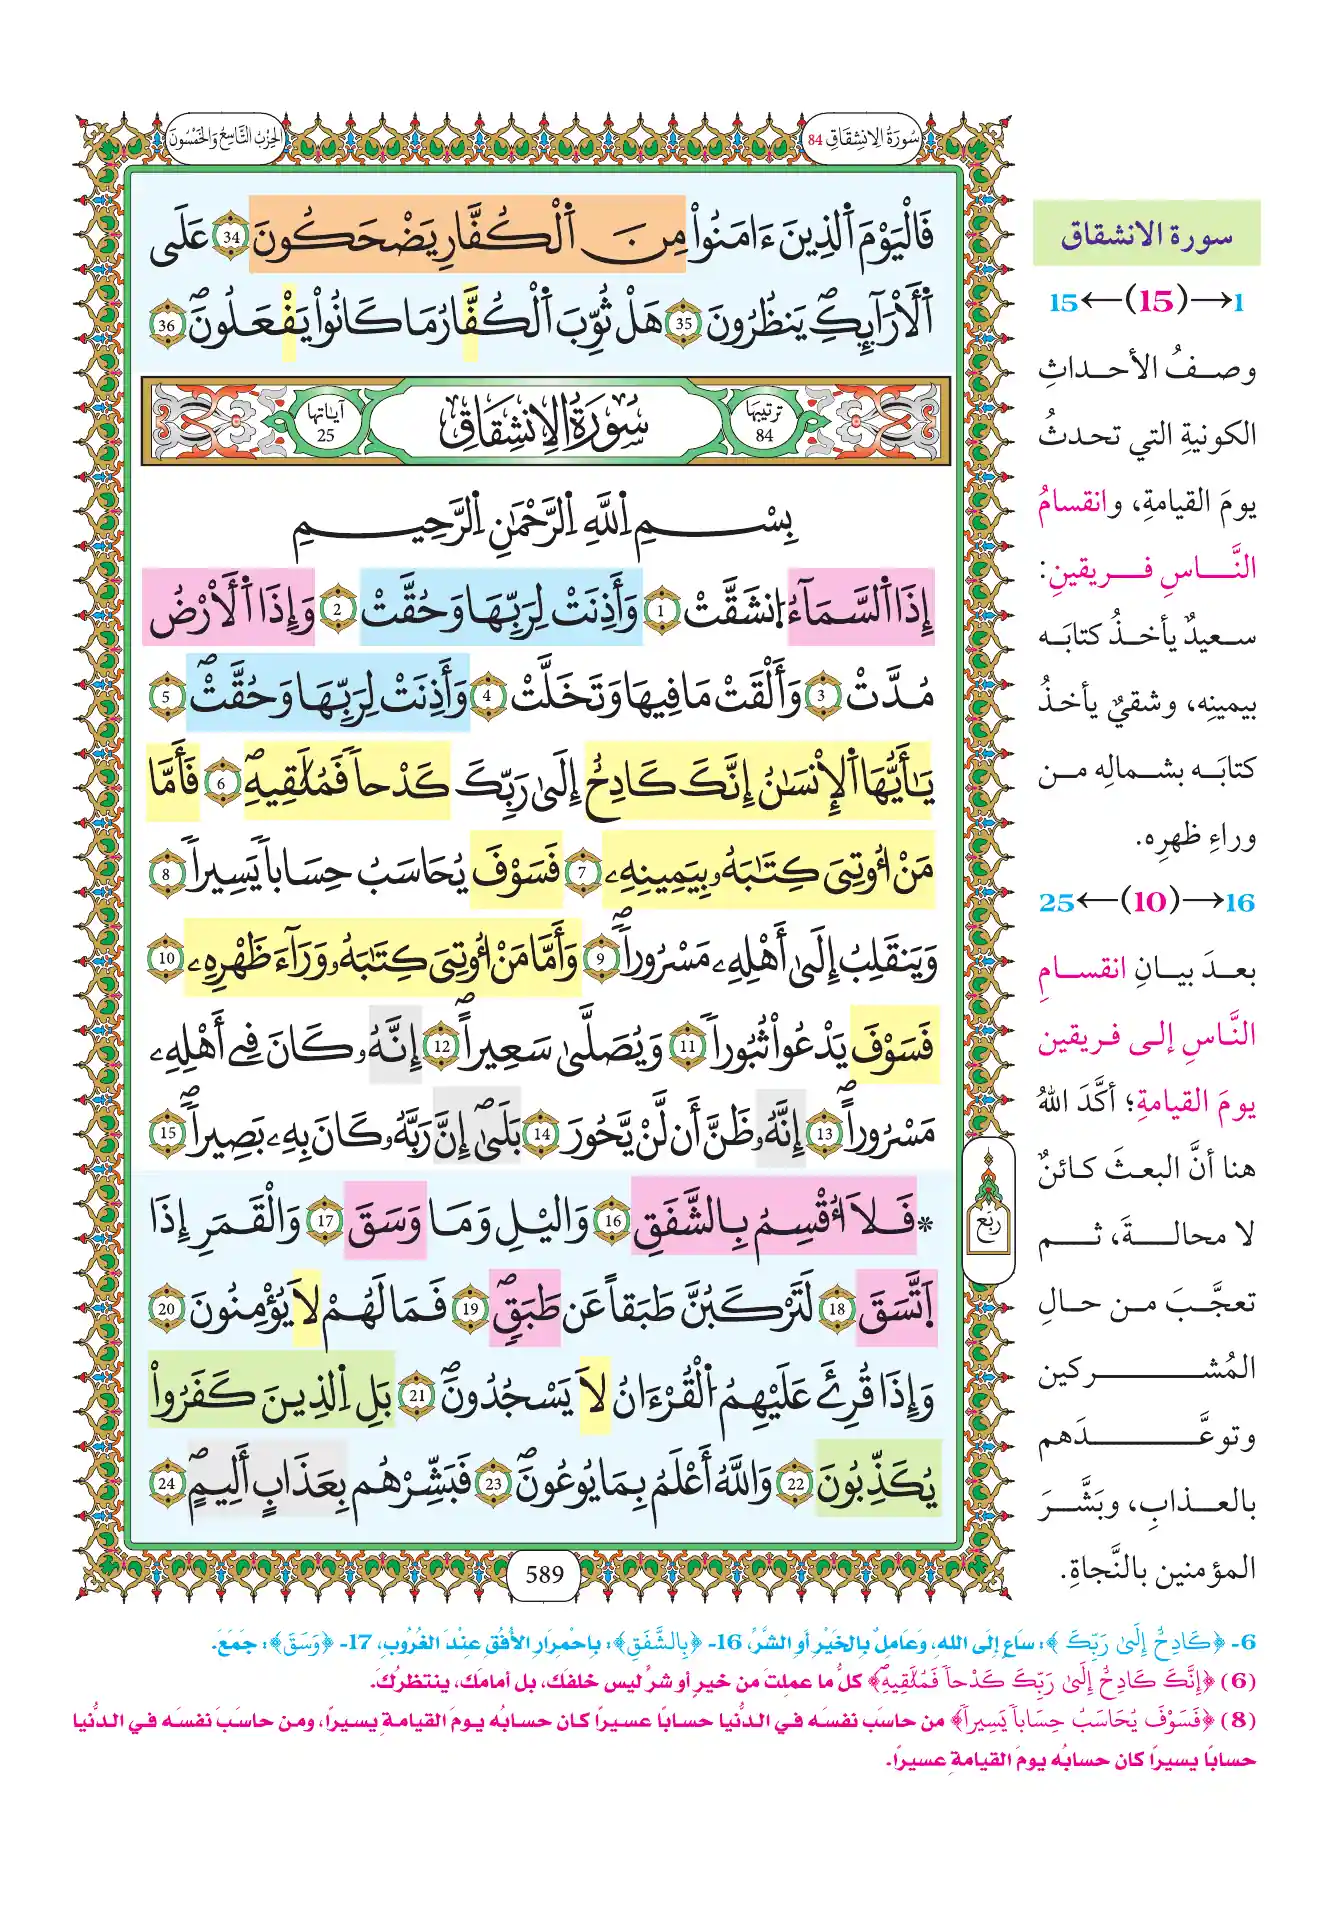 سُورَةُ الِانشِقَاقِ 84
الحِزْبُ التَّاسِعُ وَالخَمْسُونَ
فَالْيَوْمَ اَ۬لذِينَ ءَامَنُواْ مِنَ اَ۬لْكُفَّارِ يَضْحَكُونَ 34 عَلَى
اَ۬لَارَآئِكِ يَنظُرُونَ 35 هَلْ ثُوِّبَ اَ۬لْكُفَّارُ مَا كَانُواْ يَفْعَلُونَ 36
ترتيبها 84
سُورَةُ الِانشِقَاقِ
آياتها 25
بِسْمِ اِ۬للَّهِ اِ۬لرَّحْمَٰنِ اِ۬لرَّحِيمِ
إِذَا اَ۬لسَّمَآءُ اُ۪نشَقَّتْ 1 وَأَذِنَتْ لِرَبِّهَا وَحُقَّتْ 2 وَإِذَا اَ۬لَارْضُ
مُدَّتْ 3 وَأَلْقَتْ مَا فِيهَا وَتَخَلَّتْ 4 وَأَذِنَتْ لِرَبِّهَا وَحُقَّتْ 5
يَٰأَيُّهَا اَ۬لِانسَٰنُ إِنَّكَ كَادِحٌ إِلَىٰ رَبِّكَ كَدْحاً فَمُلَٰقِيهِ 6 فَأَمَّا
مَنُ ا۟وتِيَ كِتَٰبَهُۥ بِيَمِينِهِۦ 7 فَسَوْفَ يُحَاسَبُ حِسَاباً يَسِيراً 8
وَيَنقَلِبُ إِلَىٰ أَهْلِهِۦ مَسْرُوراً 9 وَأَمَّا مَنُ ا۟وتِيَ كِتَٰبَهُۥ وَرَآءَ ظَهْرِهِۦ 10
فَسَوْفَ يَدْعُواْ ثُبُوراً 11 وَيُصَلَّىٰ سَعِيراً 12 إِنَّهُۥ كَانَ فِي أَهْلِهِۦ
مَسْرُوراً 13 إِنَّهُۥ ظَنَّ أَن لَّنْ يَّحُورَ 14 بَلَىٰ إِنَّ رَبَّهُۥ كَانَ بِهِۦ بَصِيراً 15
* فَلَا أُقْسِمُ بِالشَّفَقِ 16 وَاليْلِ وَمَا وَسَقَ 17 وَالْقَمَرِ إِذَا
اَ۪تَّسَقَ 18 لَتَرْكَبُنَّ طَبَقاً عَن طَبَقٍ 19 فَمَا لَهُمْ لَا يُؤْمِنُونَ 20
وَإِذَا قُرِئَ عَلَيْهِمُ اُ۬لْقُرْءَانُ لَا يَسْجُدُونَ 21 بَلِ اِ۬لذِينَ كَفَرُواْ
يُكَذِّبُونَ 22 وَاللَّهُ أَعْلَمُ بِمَا يُوعُونَ 23 فَبَشِّرْهُم بِعَذَابٍ أَلِيمٍ 24
ربع
589
سورة الانشقاق
1→(15)←15
وصفُ الأحداثِ
الكونيةِ التي تحدثُ
يومَ القيامةِ، وانقسامُ
النَّاسِ فريقينِ:
سعيدٌ يأخذُ كتابَه
بيمينِه، وشقيٌ يأخذُ
كتابَه بشمالِه من
وراءِ ظهرِه.
16→(10)←25
بعدَ بيانِ انقسامِ
النَّاسِ إلى فريقين
يومَ القيامةِ؛ أكَّدَ اللهُ
هنا أنَّ البعثَ كائنٌ
لا محالةَ، ثم
تعجَّبَ من حالِ
المُشركين
وتوعَّدَهم
بالعذابِ، وبَشَّرَ
المؤمنين بالنَّجاةِ.
6- ﴿كَادِحٌ إِلَىٰ رَبِّكَ﴾: سَاعٍ إِلَى اللهِ، وَعَامِلٌ بِالخَيْرِ أَوِ الشَّرِّ، 16- ﴿بِالشَّفَقِ﴾: بِاحْمِرَارِ الأُفُقِ عِنْدَ الغُرُوبِ، 17- ﴿وَسَقَ﴾: جَمَعَ.
(6) ﴿إِنَّكَ كَادِحٌ إِلَىٰ رَبِّكَ كَدْحاً فَمُلَٰقِيهِ﴾ كلُّ ما عملِتَ من خيرٍ أو شرٍّ ليس خلفَك، بل أمامَك، ينتظرُك.
(8) ﴿فَسَوْفَ يُحَاسَبُ حِسَاباً يَسِيراً﴾ من حاسَبَ نفسَه في الدُّنيا حسابًا عسيرًا كان حسابُه يومَ القيامةِ يسيرًا، ومن حاسَبَ نفسَه في الدُّنيا
حسابًا يسيرًا كان حسابُه يومَ القيامةِ عسيرًا.